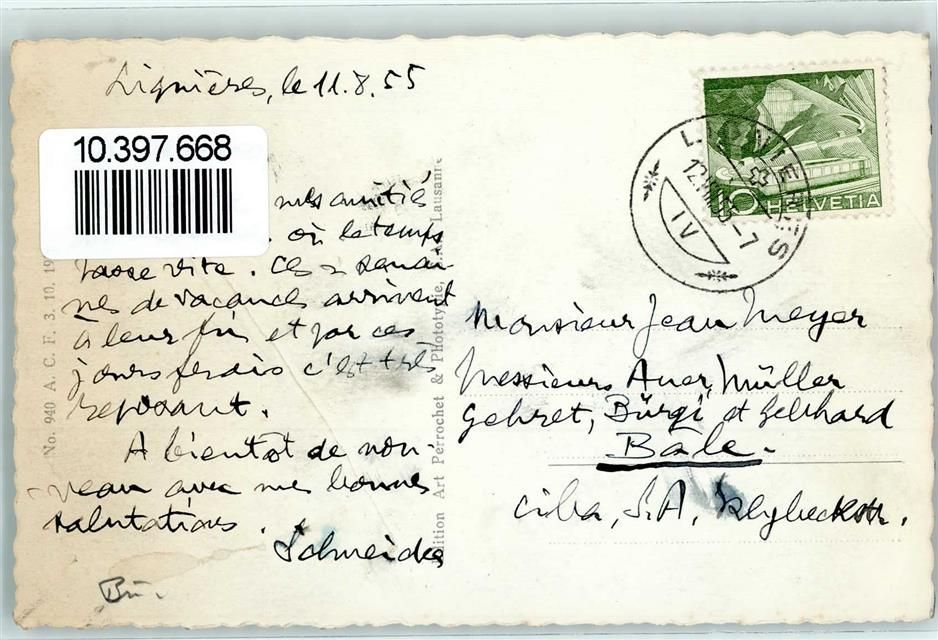 Lignières, le 11.8.55
10.397.668
mes amitiés
où le temps
passe vite. Ces 2 semai
nes de vacances arrivent
à leur fin et par ces
jours c'est très
reposant.
A bientot de nou-
veau avec mes bonnes
salutations.
Schneider
Bü.
No. 940 A. C. F. 3. 10. 19
Edition Art Perrochet & Phototypie, Lausanne
LIGNIERES
12.VIII.55-7
IV
10 HELVETIA
Monsieur Jean Meyer
Messieurs Auer, Müller
Gehret, Bürgi et Gebhard
Bâle.
Ciba, S.A, Klybeckstr.